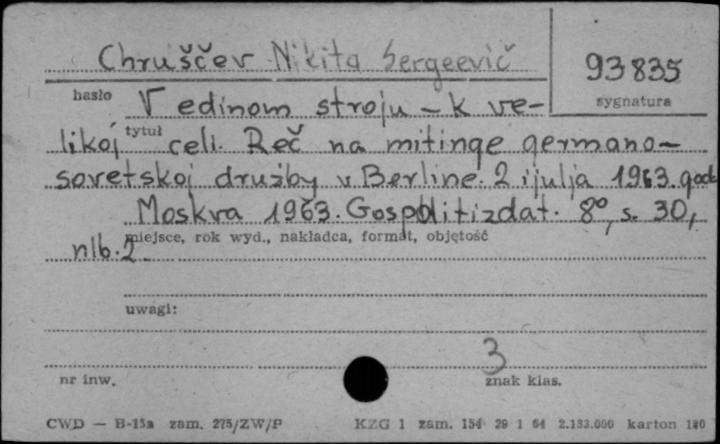 Chruščev Nikita Sergeevič
93835
hasło
sygnatura
V edinom stroju – k ve-
likoj tytuł celi. Reč na mitinge germano-
sovetskoj družby v Berline. 2 ijulja 1963. goda
Moskva 1963. Gospolitizdat. 8°, s. 30,
miejsce, rok wyd., nakładca, format, objętość
nlb. 2
uwagi:
3
nr inw.
znak klas.
CWD — B-15a zam. 275/ZW/P KZG 1 zam. 154 29 1 64 2.133.000 karton 180